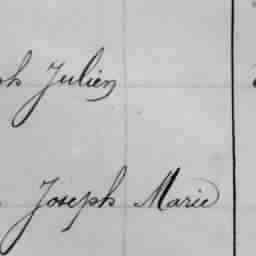 Julien
Joseph Marie